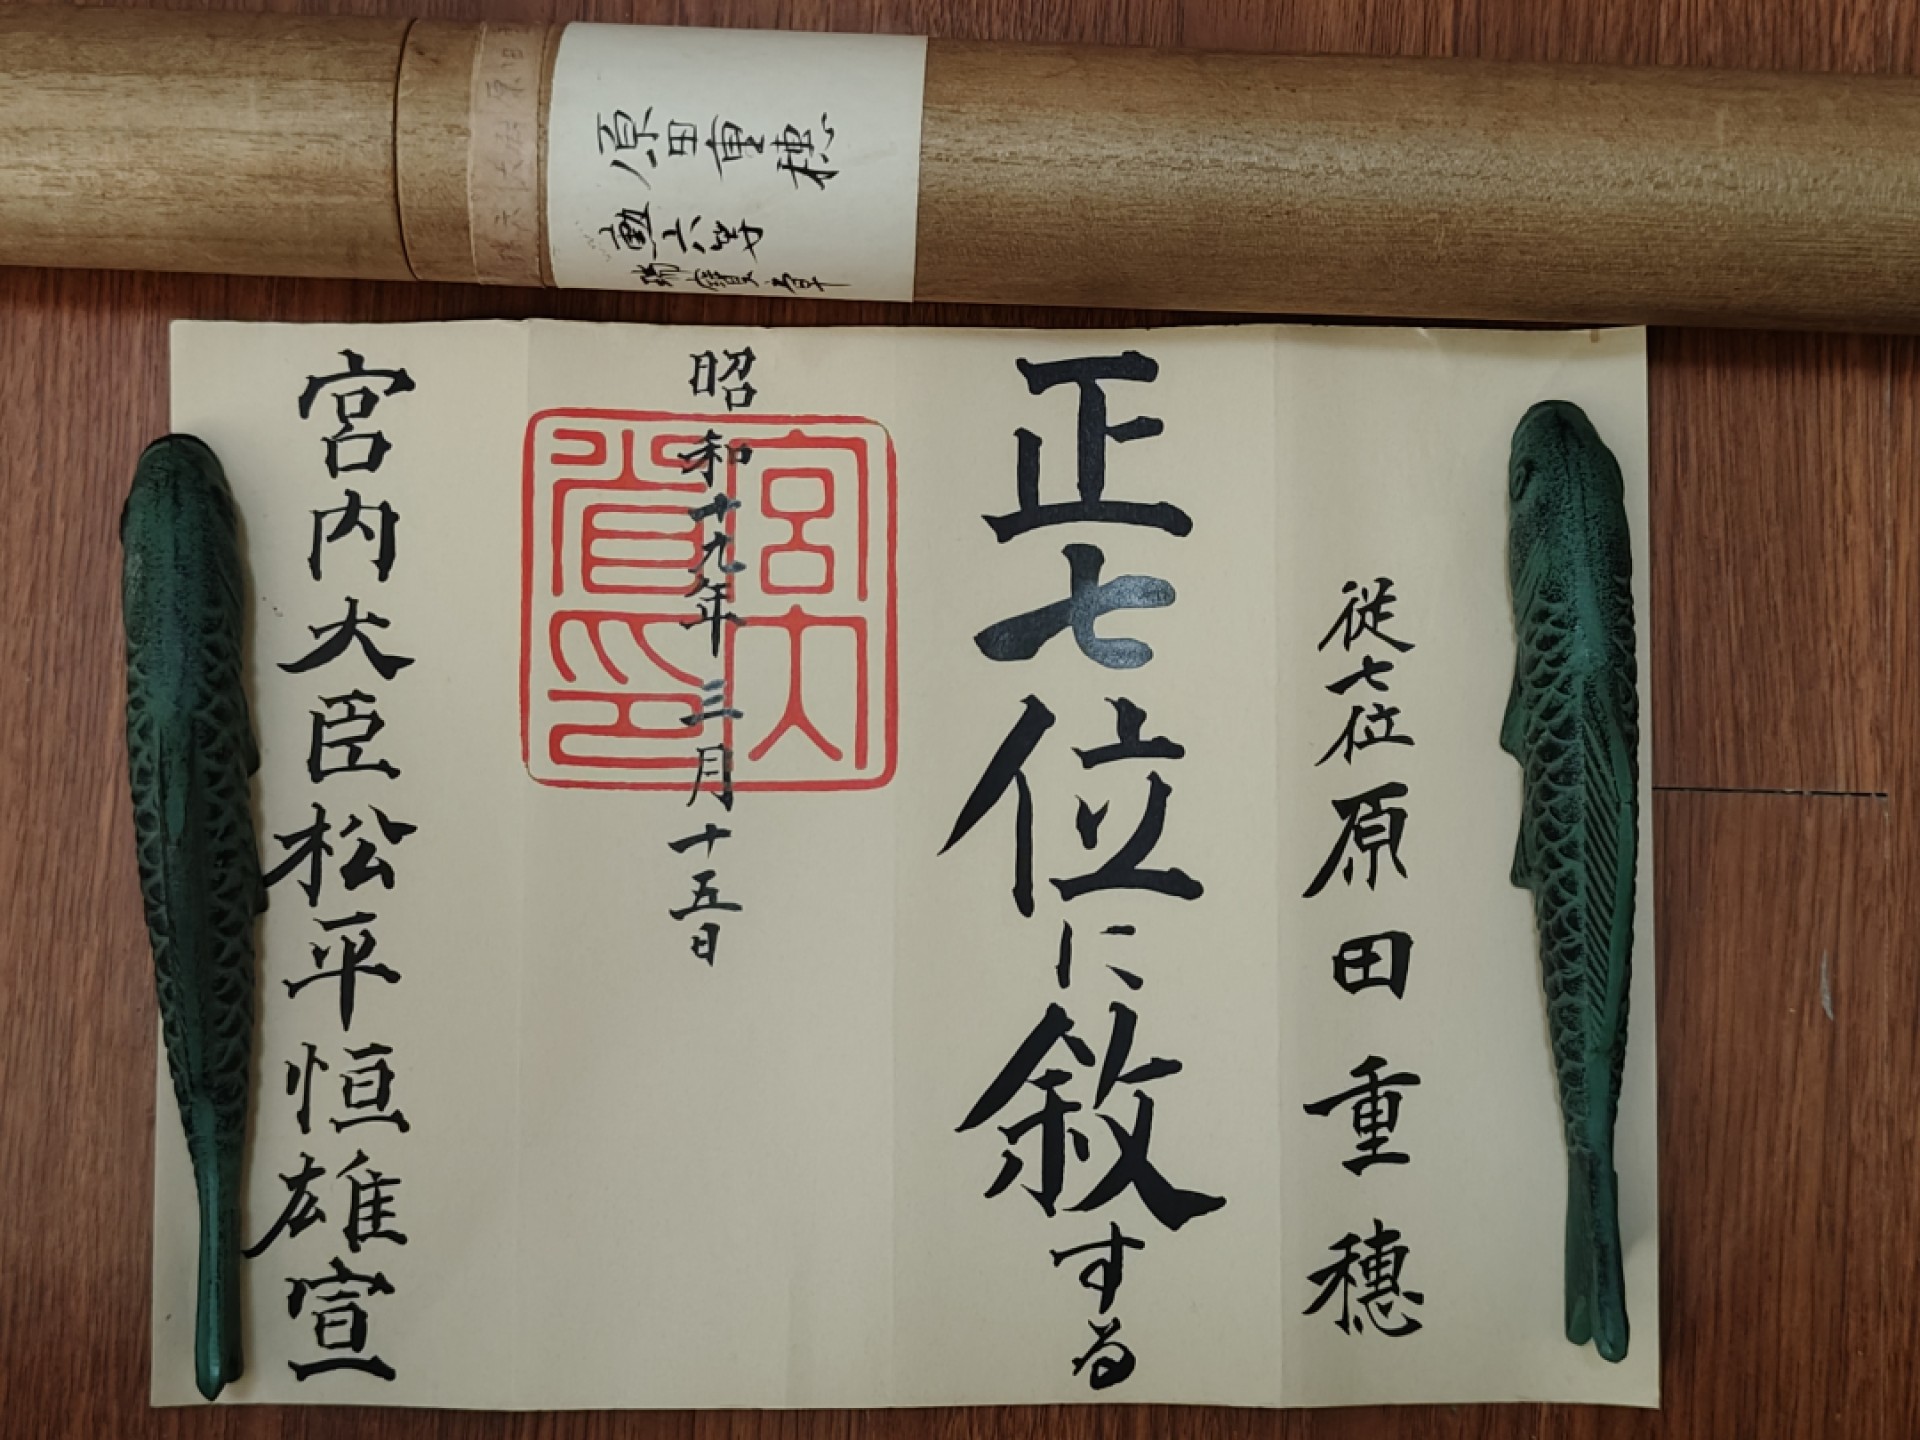 原田重穂
勲六等
瑞寳章
従七位原田重穗
正七位に敘する
昭和十九年三月十五日
宮内省印
宮内大臣松平恒雄宣